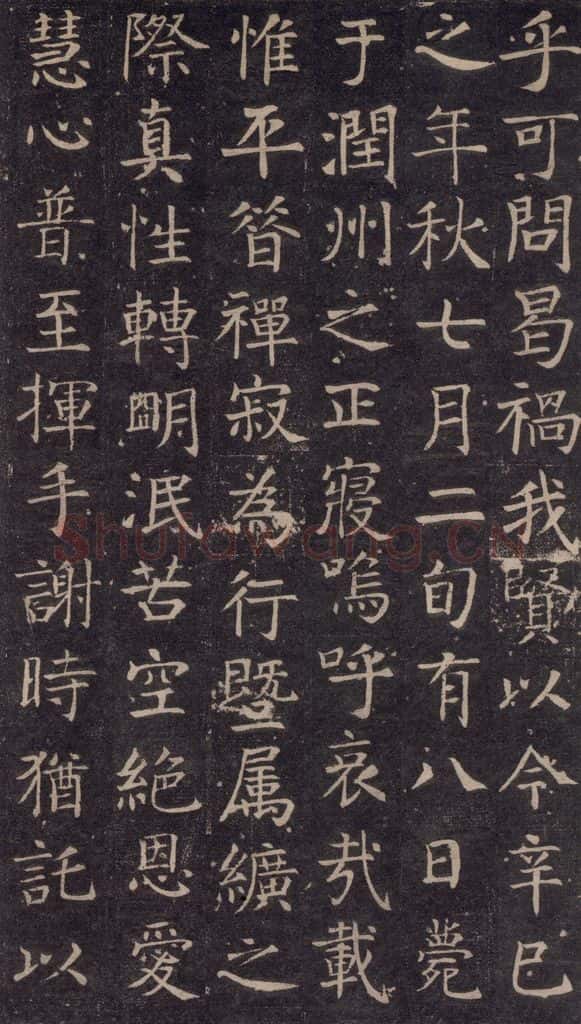 乎可問曷禍我賢以今辛巳
之年秋七月二旬有八日薨
于潤州之正寢嗚呼哀㢤載
惟平昝禪寂為行暨属纊之
際真性轉明泯苦空絕恩愛
慧心普至揮手謝時猶託以
Shufawang.CN